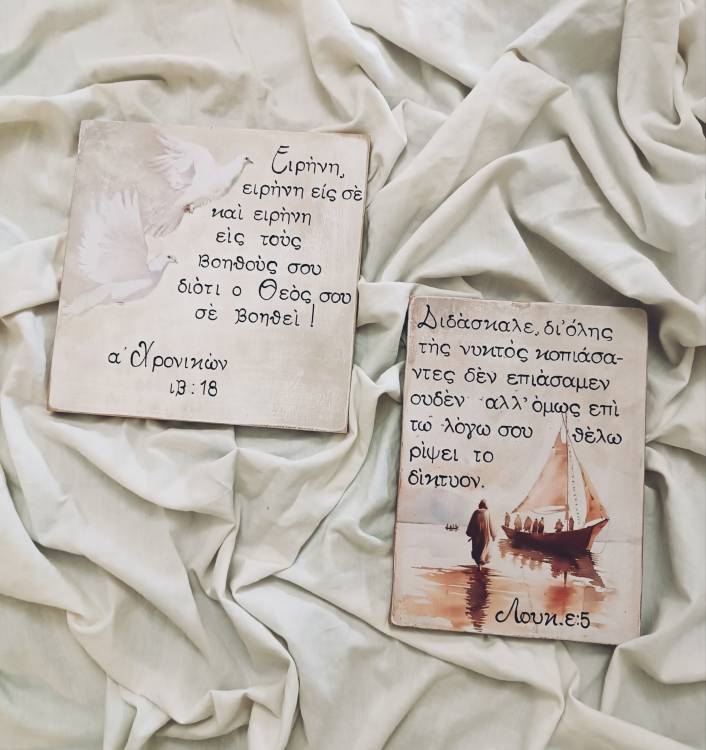 Ειρὴνη,
ειρὴνη είς σὲ
καὶ ειρὴνη
εὶς τοὺς
βοηθοὺς σου
διὸτι ο Θεὸς σου
σὲ βοηθεὶ !
α' Χρονικὼν
ιβ : 18
Διδὰσκαλε, δι'όλης
τὴς νυκτὸς κοπιὰσα-
ντες δὲν επιὰσαμεν
ουδὲν αλλ' όμως επὶ
τω λόγω σου θὲλω
ρὶψει το
δὶκτυον.
Λουκ. ε:5